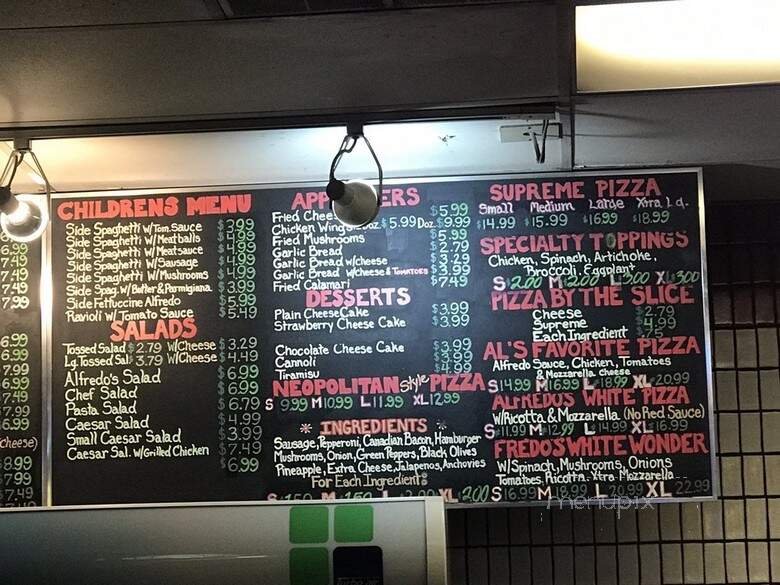 CHILDRENS MENU
Side Spaghetti W/Tom. Sauce $3.99
Side Spaghetti W/Meatballs $4.99
Side Spaghetti W/Meatsauce $4.99
Side Spaghetti W/Sausage $4.99
Side Spaghetti W/Mushrooms $4.99
Side Spag. W/Butter & Parmigiana $3.99
Side Fettuccine Alfredo $5.99
Ravioli W/Tomato Sauce $5.49
SALADS
Tossed Salad $2.79 W/Cheese $3.29
Lg. Tossed Sal. 3.79 W/Cheese $4.49
Alfredo's Salad $6.99
Chef Salad $6.99
Pasta Salad $6.79
Caesar Salad $4.99
Small Caesar Salad $3.99
Caesar Sal. W/Grilled Chicken $7.49
$6.99
Fried $5.99
Chicken Wings $5.99 Doz. $9.99
Fried Mushrooms $5.99
Garlic Bread $2.79
Garlic Bread w/cheese $3.29
Garlic Bread w/cheese & Tomatoes $3.99
Fried Calamari $7.49
DESSERTS
Plain Cheese Cake $3.99
Strawberry Cheese Cake $3.99
Chocolate Cheese Cake
Cannoli
Tramisu
NEOPOLITAN Style PIZZA
S 9.99 M 10.99 L 11.99 XL 12.99
* INGREDIENTS *
Sausage, Pepperoni, Canadian Bacon, Hamburger
Mushrooms, Onion, Green Peppers, Black Olives
Pineapple, Extra Cheese, Jalapenos, Anchovies
For Each Ingredient:
XL 2.00
SUPREME PIZZA
Small Medium Large Xtra Ld.
$14.99 $15.99 $16.99 $18.99
SPECIALTY TOPPINGS
Chicken, Spinach, Artichoke,
Broccoli, Eggplant
S 2.00 M 2.00 L 3.00 XL 3.00
PIZZA BY THE SLICE
Cheese $2.79
Supreme $4.99
Each Ingredient .75
AL'S FAVORITE PIZZA
Alfredo Sauce, Chicken, Tomatoes
& Mozzarella cheese
S $14.99 M $16.99 L $18.99 XL $20.99
ALFREDOS WHITE PIZZA
W/Ricotta & Mozzarella (No Red Sauce)
S $11.99 M $12.99 L $14.99 XL $16.99
FREDO'S WHITE WONDER
W/Spinach, Mushrooms, Onions
Tomatoes, Ricotta, Xtra Mozzarella
S $16.99 M $18.99 L $20.99 XL 22.99
menupix